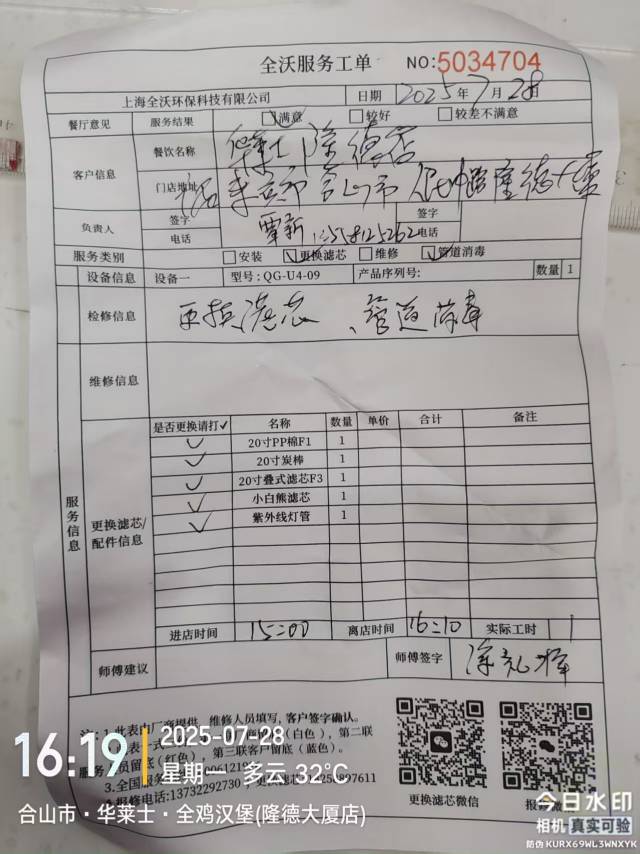 全沃服务工单 NO:5034704
上海全沃环保科技有限公司 日期 2025年7月28日
餐厅意见 服务结果 ☑满意 □较好 □较差不满意
客户信息 餐饮名称 华莱士隆德店
门店地址
负责人 签字 覃新 签字
电话 电话
服务类别 □安装 ☑更换滤芯 □维修 ☑管道消毒
设备信息 设备一 型号:QG-U4-09 产品序列号: 数量 1
检修信息 更换滤芯、管道消毒
维修信息
服务信息 更换滤芯/配件信息
是否更换请打✓ 名称 数量 单价 合计 备注
✓ 20寸PP棉F1 1
✓ 20寸炭棒 1
✓ 20寸叠式滤芯F3 1
✓ 小白熊滤芯 1
✓ 紫外线灯管 1
进店时间 15:00 离店时间 16:10 实际工时 1
师傅建议 师傅签字
注:1.此表由厂商提供,维修人员填写,客户签字确认。
(白色),第二联
(红色),第三联客户留底(蓝色)。
3.全国服务
报修电话:13732292730,更换滤芯
更换滤芯微信
16:19 2025-07-28
星期一 多云 32℃
合山市·华莱士·全鸡汉堡(隆德大厦店)
今日水印
相机 真实可验
防伪 KURX69WL3WNXYK